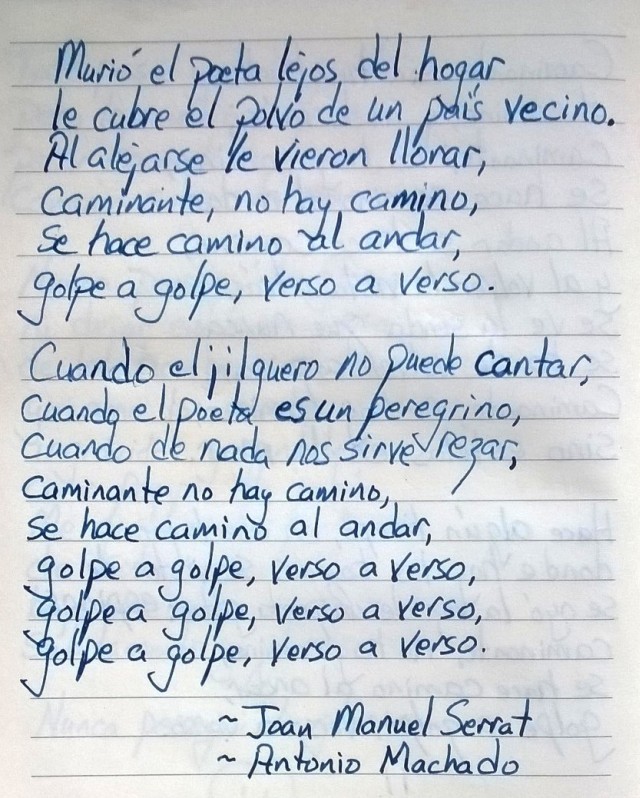 Murió el poeta lejos del hogar
le cubre el polvo de un país vecino.
Al alejarse le vieron llorar,
Caminante, no hay camino,
se hace camino al andar,
golpe a golpe, verso a verso.
Cuando el jilguero no puede cantar,
Cuando el poeta es un peregrino,
Cuando de nada nos sirve rezar,
Caminante no hay camino,
se hace camino al andar,
golpe a golpe, verso a verso,
golpe a golpe, verso a verso,
golpe a golpe, verso a verso.
~ Joan Manuel Serrat
~ Antonio Machado